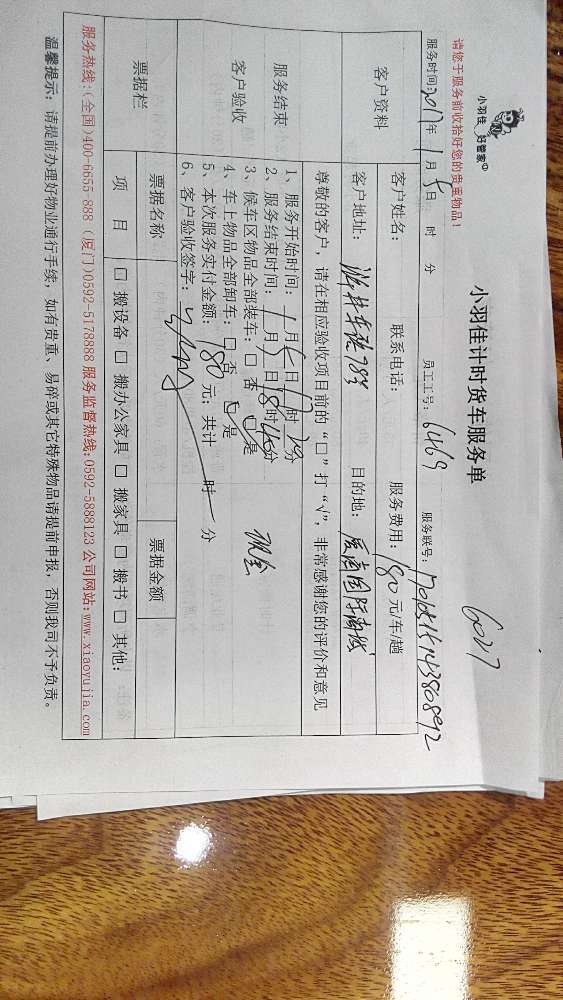 小羽佳 好管家
小羽佳计时货车服务单
6027
请您于服务前收拾好您的贵重物品！
服务时间:2017年1月5日 时 分 员工工号: 6469 服务联号:
客户资料 客户姓名: 联系电话: 服务费用: 180元/车/趟
客户地址: 目的地: 国际商城
服务结束 客户验收
尊敬的客户，请在相应验收项目前的“口”打“√”，非常感谢您的评价和意见
1、服务开始时间: 1月5日 时 分
2、服务结束时间: 1月5日18时45分
3、候车区物品全部装车: □否 □是 现金
4、车上物品全部卸车: □否 □是
5、本次服务实付金额: 180元; 共计 时 分
6、客户验收签字:
票据栏 票据名称 票据金额
项 目 □搬设备 □搬办公家具 □搬家具 □搬书 □其他:
服务热线:(全国)400-6655-888 (厦门)0592-5178888 服务监督热线:0592-5888123 公司网站:www.xiaoyujia.com
温馨提示: 请提前办理好物业通行手续, 如有贵重、易碎或其它特殊物品请提前申报, 否则我司不予负责。